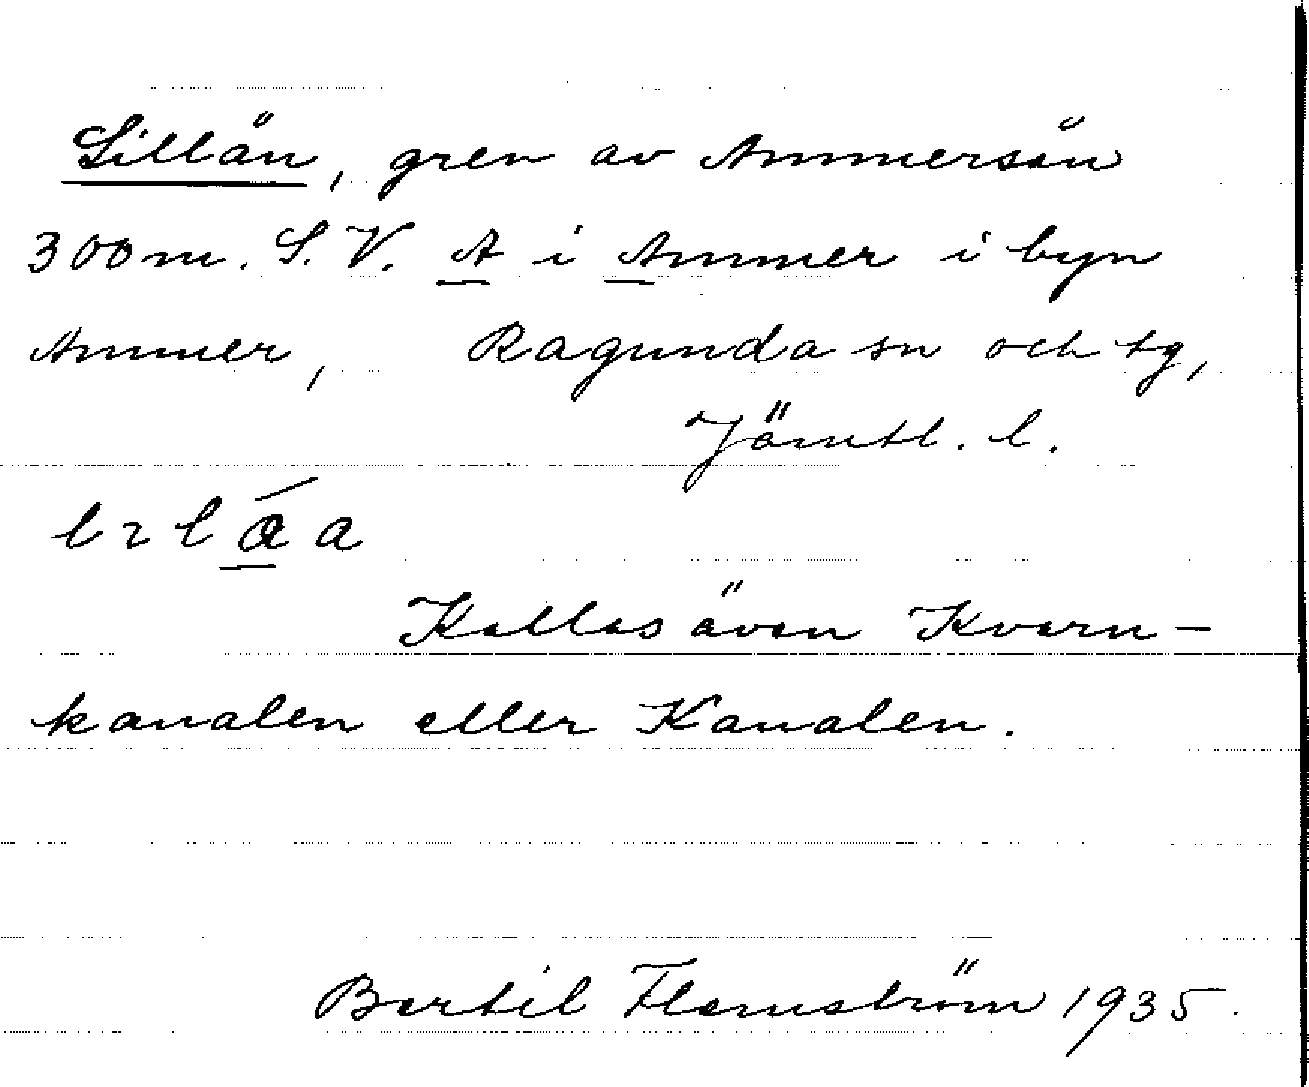 Lillån, gren av Ammersån
300 m. S.V. A i Ammer i byn
Ammer, Ragunda sn och tg,
Jämtl. l.
Kallas även Kvarn-
kanalen eller Kanalen.
Bertil Flemström 1935.